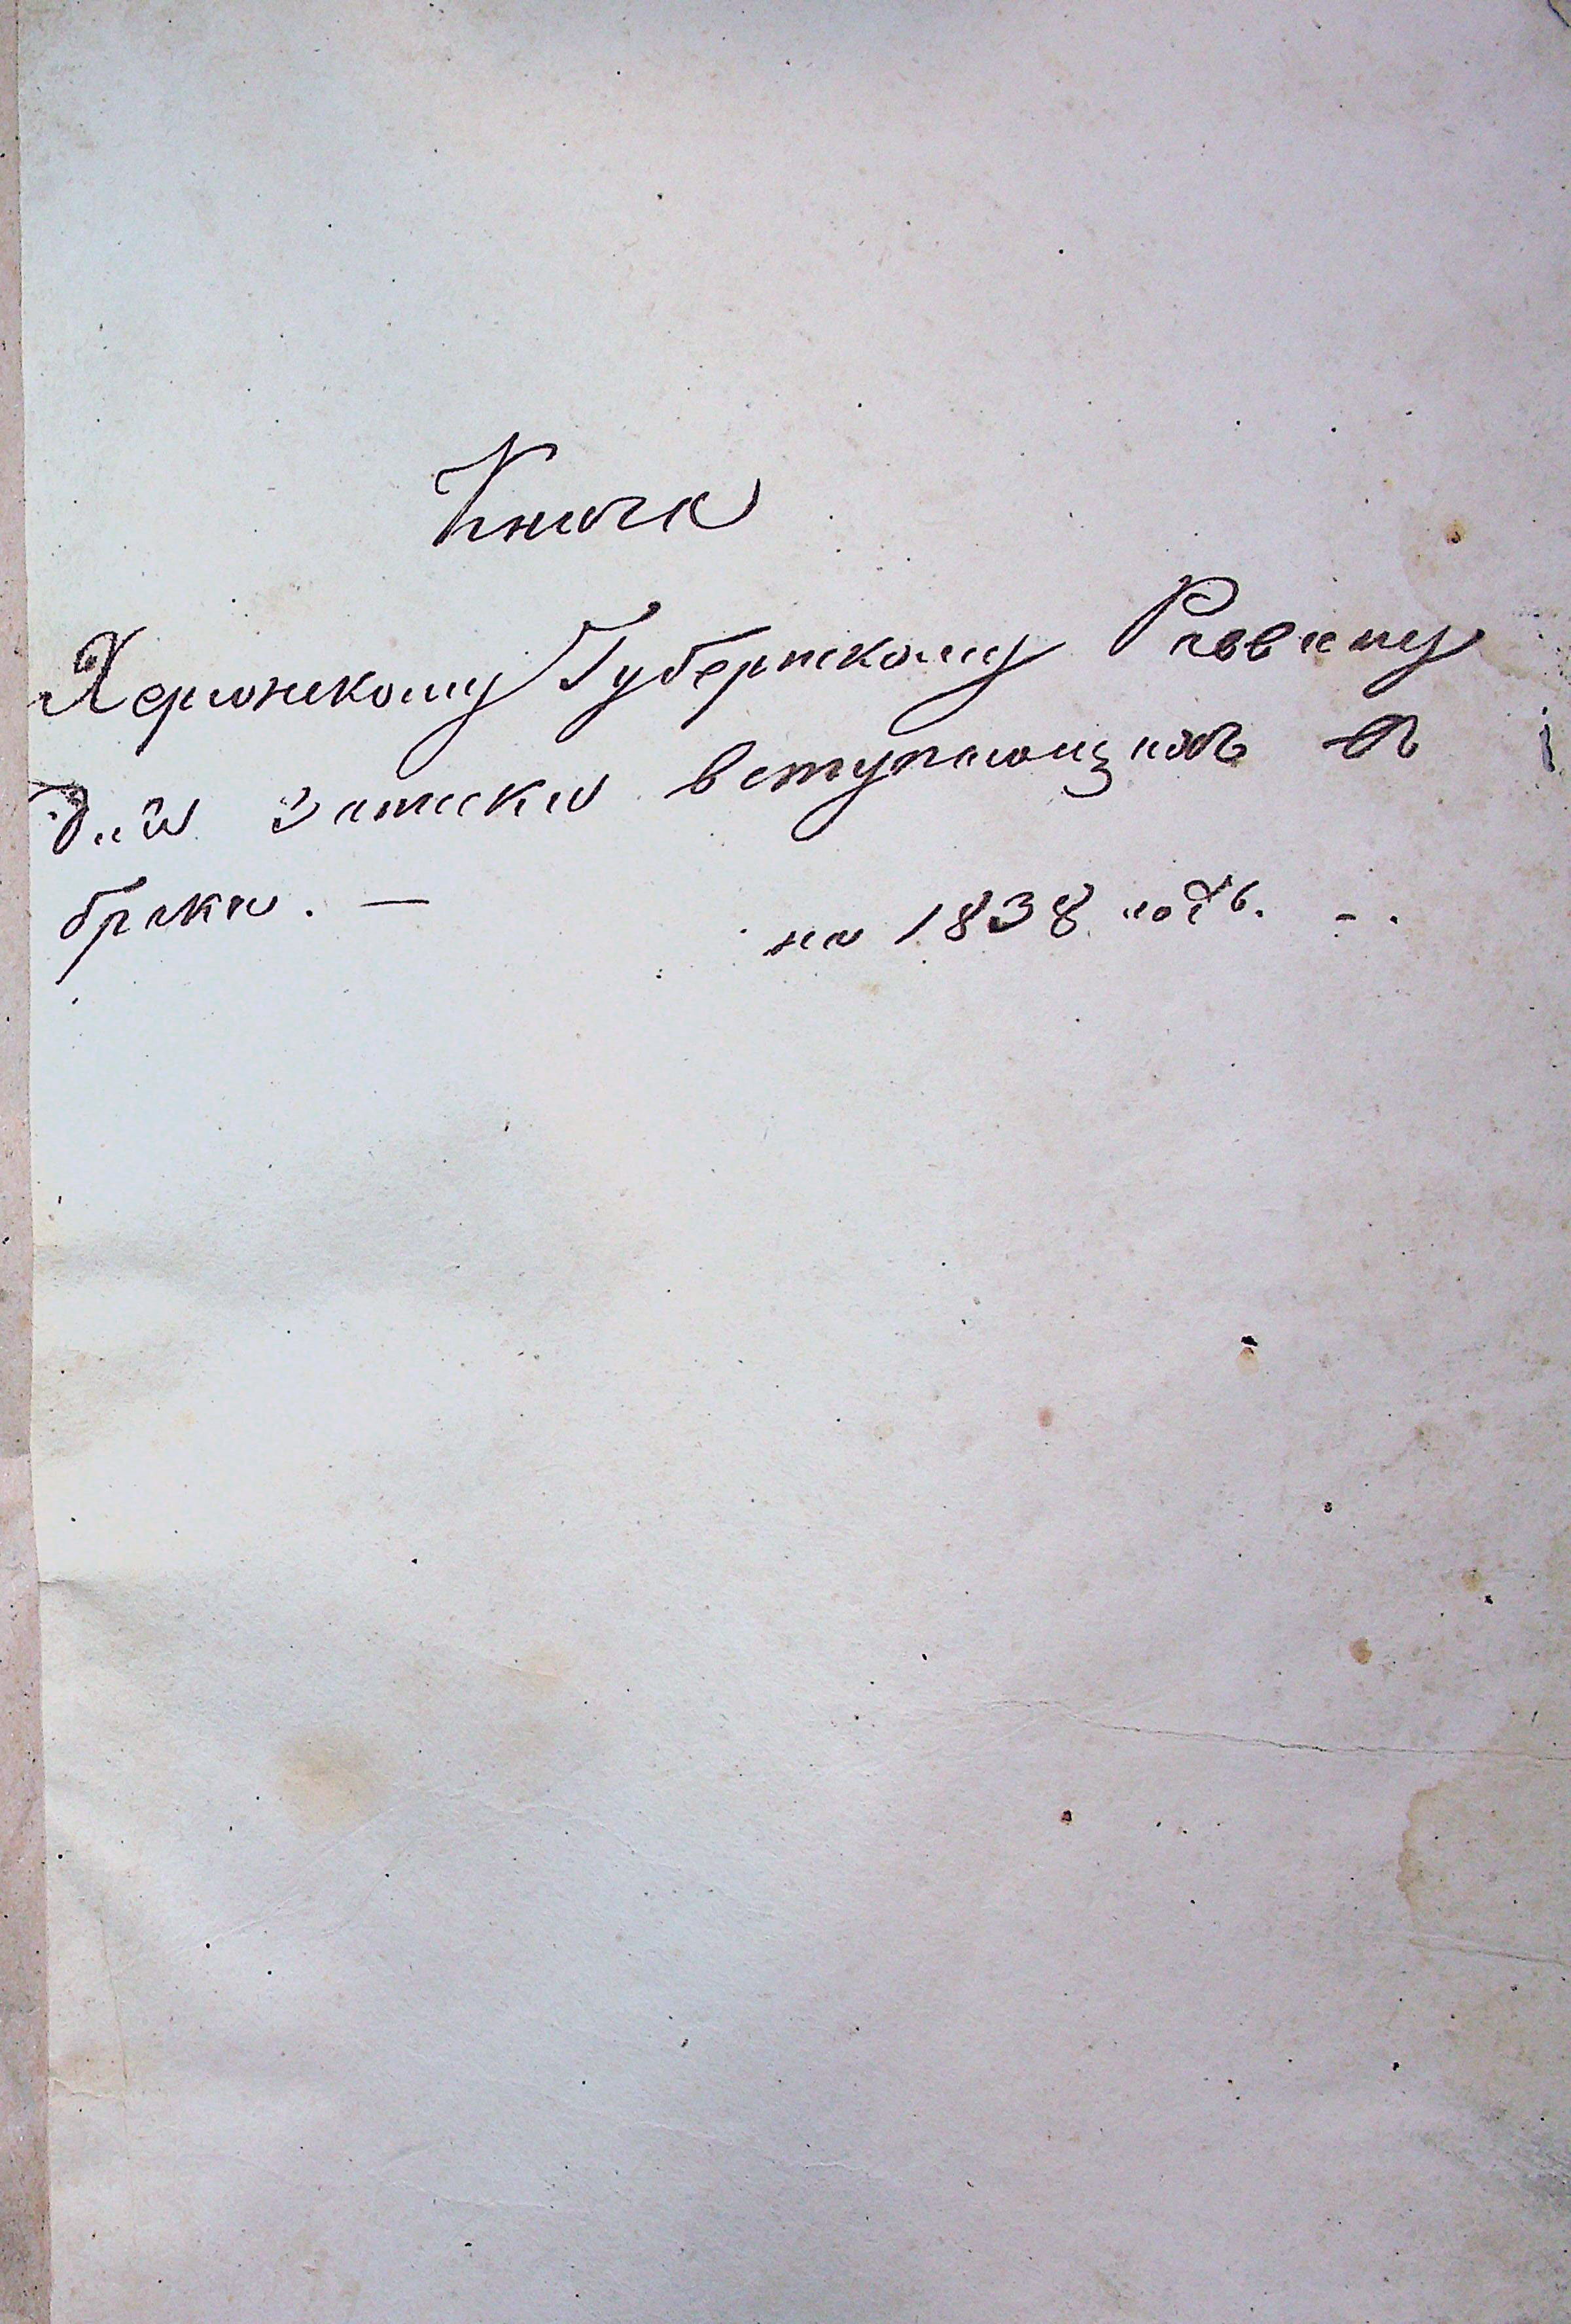 Книга
Херсонскому Губернскому Раввину
для записки вступающихъ въ
браки. —
на 1838 годъ. -.